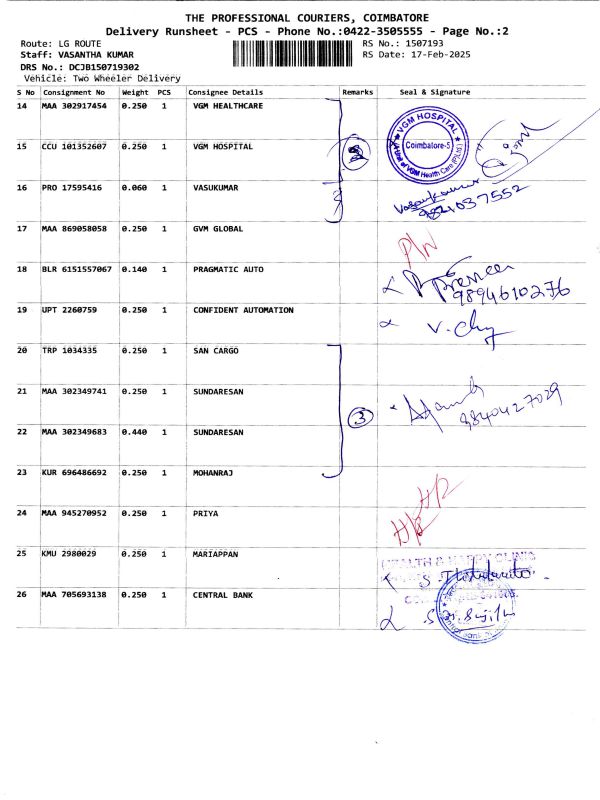 THE PROFESSIONAL COURIERS, COIMBATORE
Delivery Runsheet - PCS - Phone No.:0422-3505555 - Page No.:2
Route: LG ROUTE
RS No.: 1507193
Staff: VASANTHA KUMAR
RS Date: 17-Feb-2025
DRS No.: DCJB150719302
Vehicle: Two Wheeler Delivery
S No Consignment No Weight PCS Consignee Details Remarks Seal & Signature
14 MAA 302917454 0.250 1 VGM HEALTHCARE
VGM HOSPITAL
Coimbatore-5
(A Unit of VGM Health Care (P)Ltd)
15 CCU 101352607 0.250 1 VGM HOSPITAL
16 PRO 17595416 0.060 1 VASUKUMAR
Vasankumar
17 MAA 869058058 0.250 1 GVM GLOBAL
P/W
18 BLR 6151557067 0.140 1 PRAGMATIC AUTO
9894610276
19 UPT 2260759 0.250 1 CONFIDENT AUTOMATION
20 TRP 1034335 0.250 1 SAN CARGO
21 MAA 302349741 0.250 1 SUNDARESAN
3
9840427029
22 MAA 302349683 0.440 1 SUNDARESAN
23 KUR 696486692 0.250 1 MOHANRAJ
24 MAA 945270952 0.250 1 PRIYA
25 KMU 2980029 0.250 1 MARIAPPAN
26 MAA 705693138 0.250 1 CENTRAL BANK